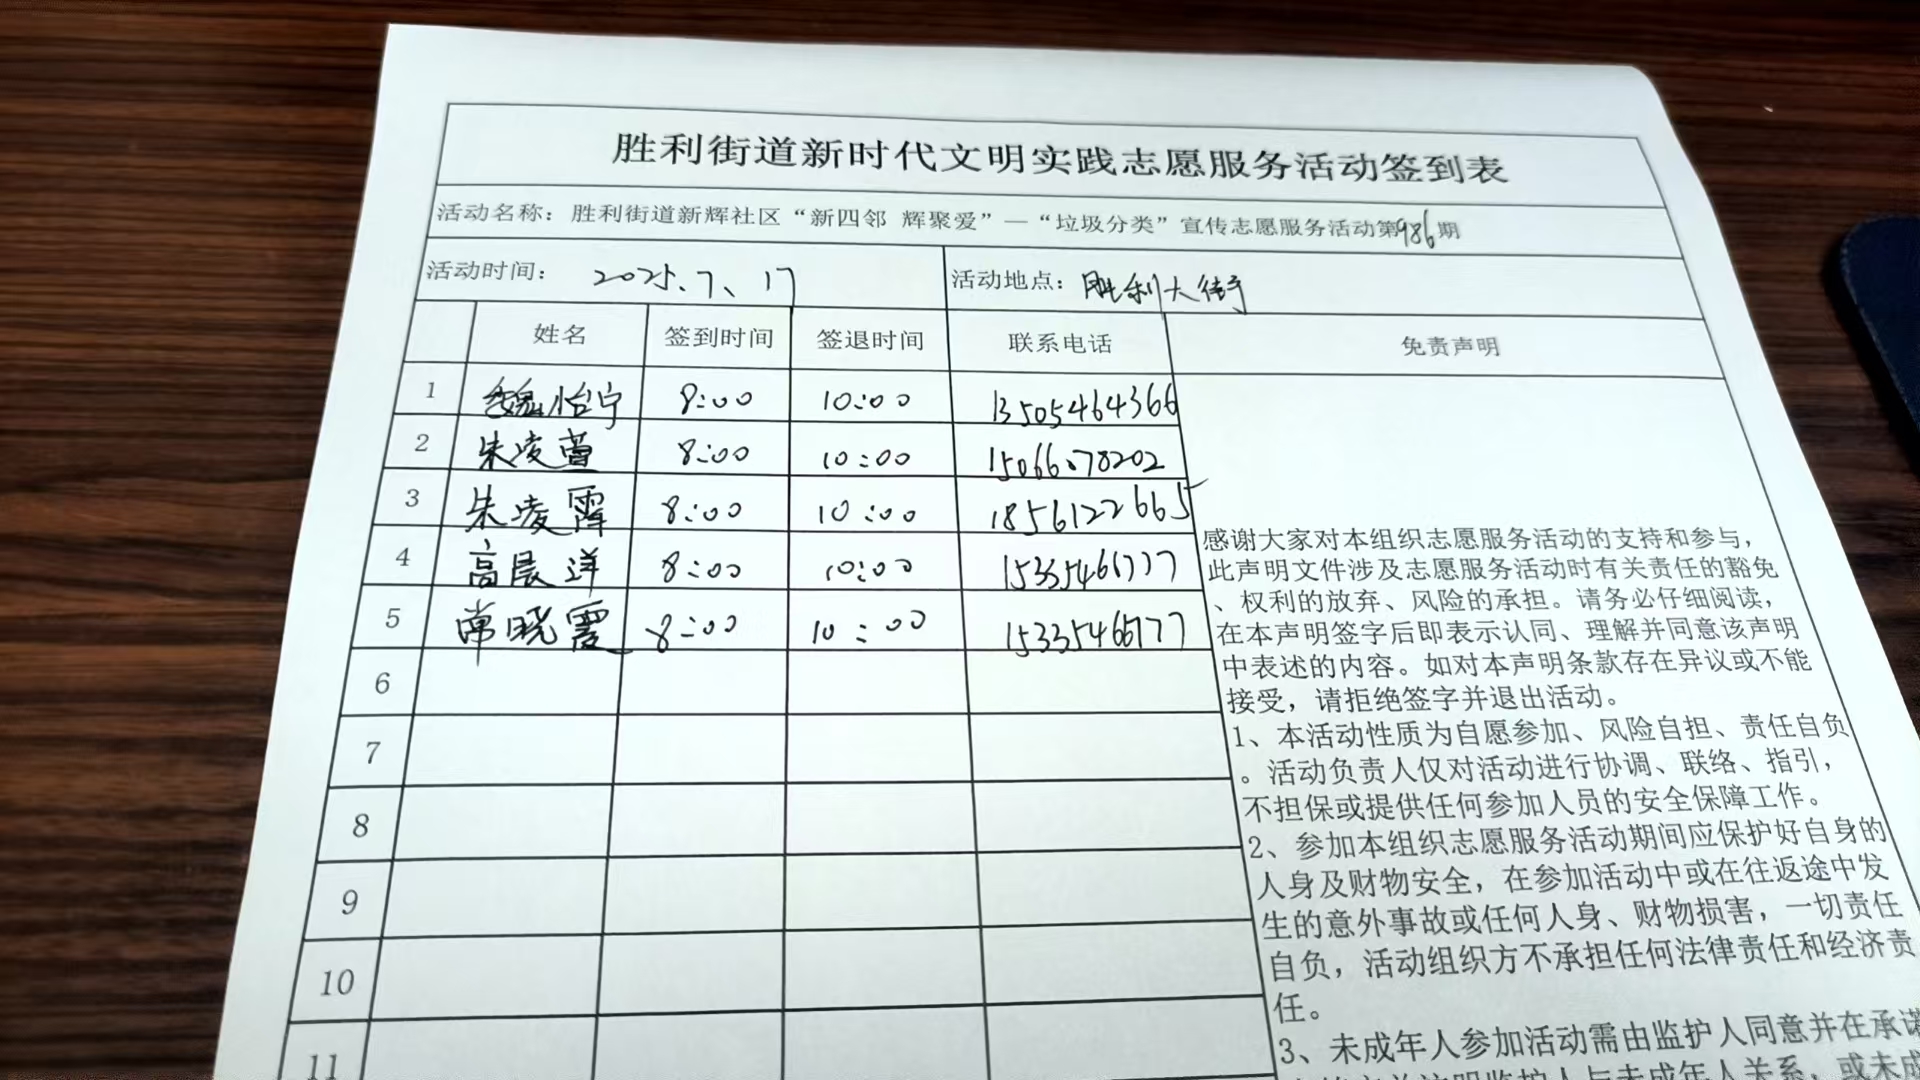 胜利街道新时代文明实践志愿服务活动签到表
活动名称：胜利街道新辉社区“新四邻 辉聚爱”—“垃圾分类”宣传志愿服务活动第986期
活动时间： 2025、7、17 活动地点：胜利大街
姓名 签到时间 签退时间 联系电话 免责声明
1 魏怡宁 8:00 10:00 13505464366
2 朱凌萱 8:00 10:00 15066078202
3 朱凌霄 8:00 10:00 18561222665
4 高晨洋 8:00 10:00 15335466777
5 常晓霞 8:00 10:00 15335466777
6
7
8
9
10
11
感谢大家对本组织志愿服务活动的支持和参与，
此声明文件涉及志愿服务活动时有关责任的豁免
、权利的放弃、风险的承担。请务必仔细阅读，
在本声明签字后即表示认同、理解并同意该声明
中表述的内容。如对本声明条款存在异议或不能
接受，请拒绝签字并退出活动。
1、本活动性质为自愿参加、风险自担、责任自负
。活动负责人仅对活动进行协调、联络、指引，
不担保或提供任何参加人员的安全保障工作。
2、参加本组织志愿服务活动期间应保护好自身的
人身及财物安全，在参加活动中或在往返途中发
生的意外事故或任何人身、财物损害，一切责任
自负，活动组织方不承担任何法律责任和经济责
任。
3、未成年人参加活动需由监护人同意并在承诺
监护人与未成年人关系，或未成